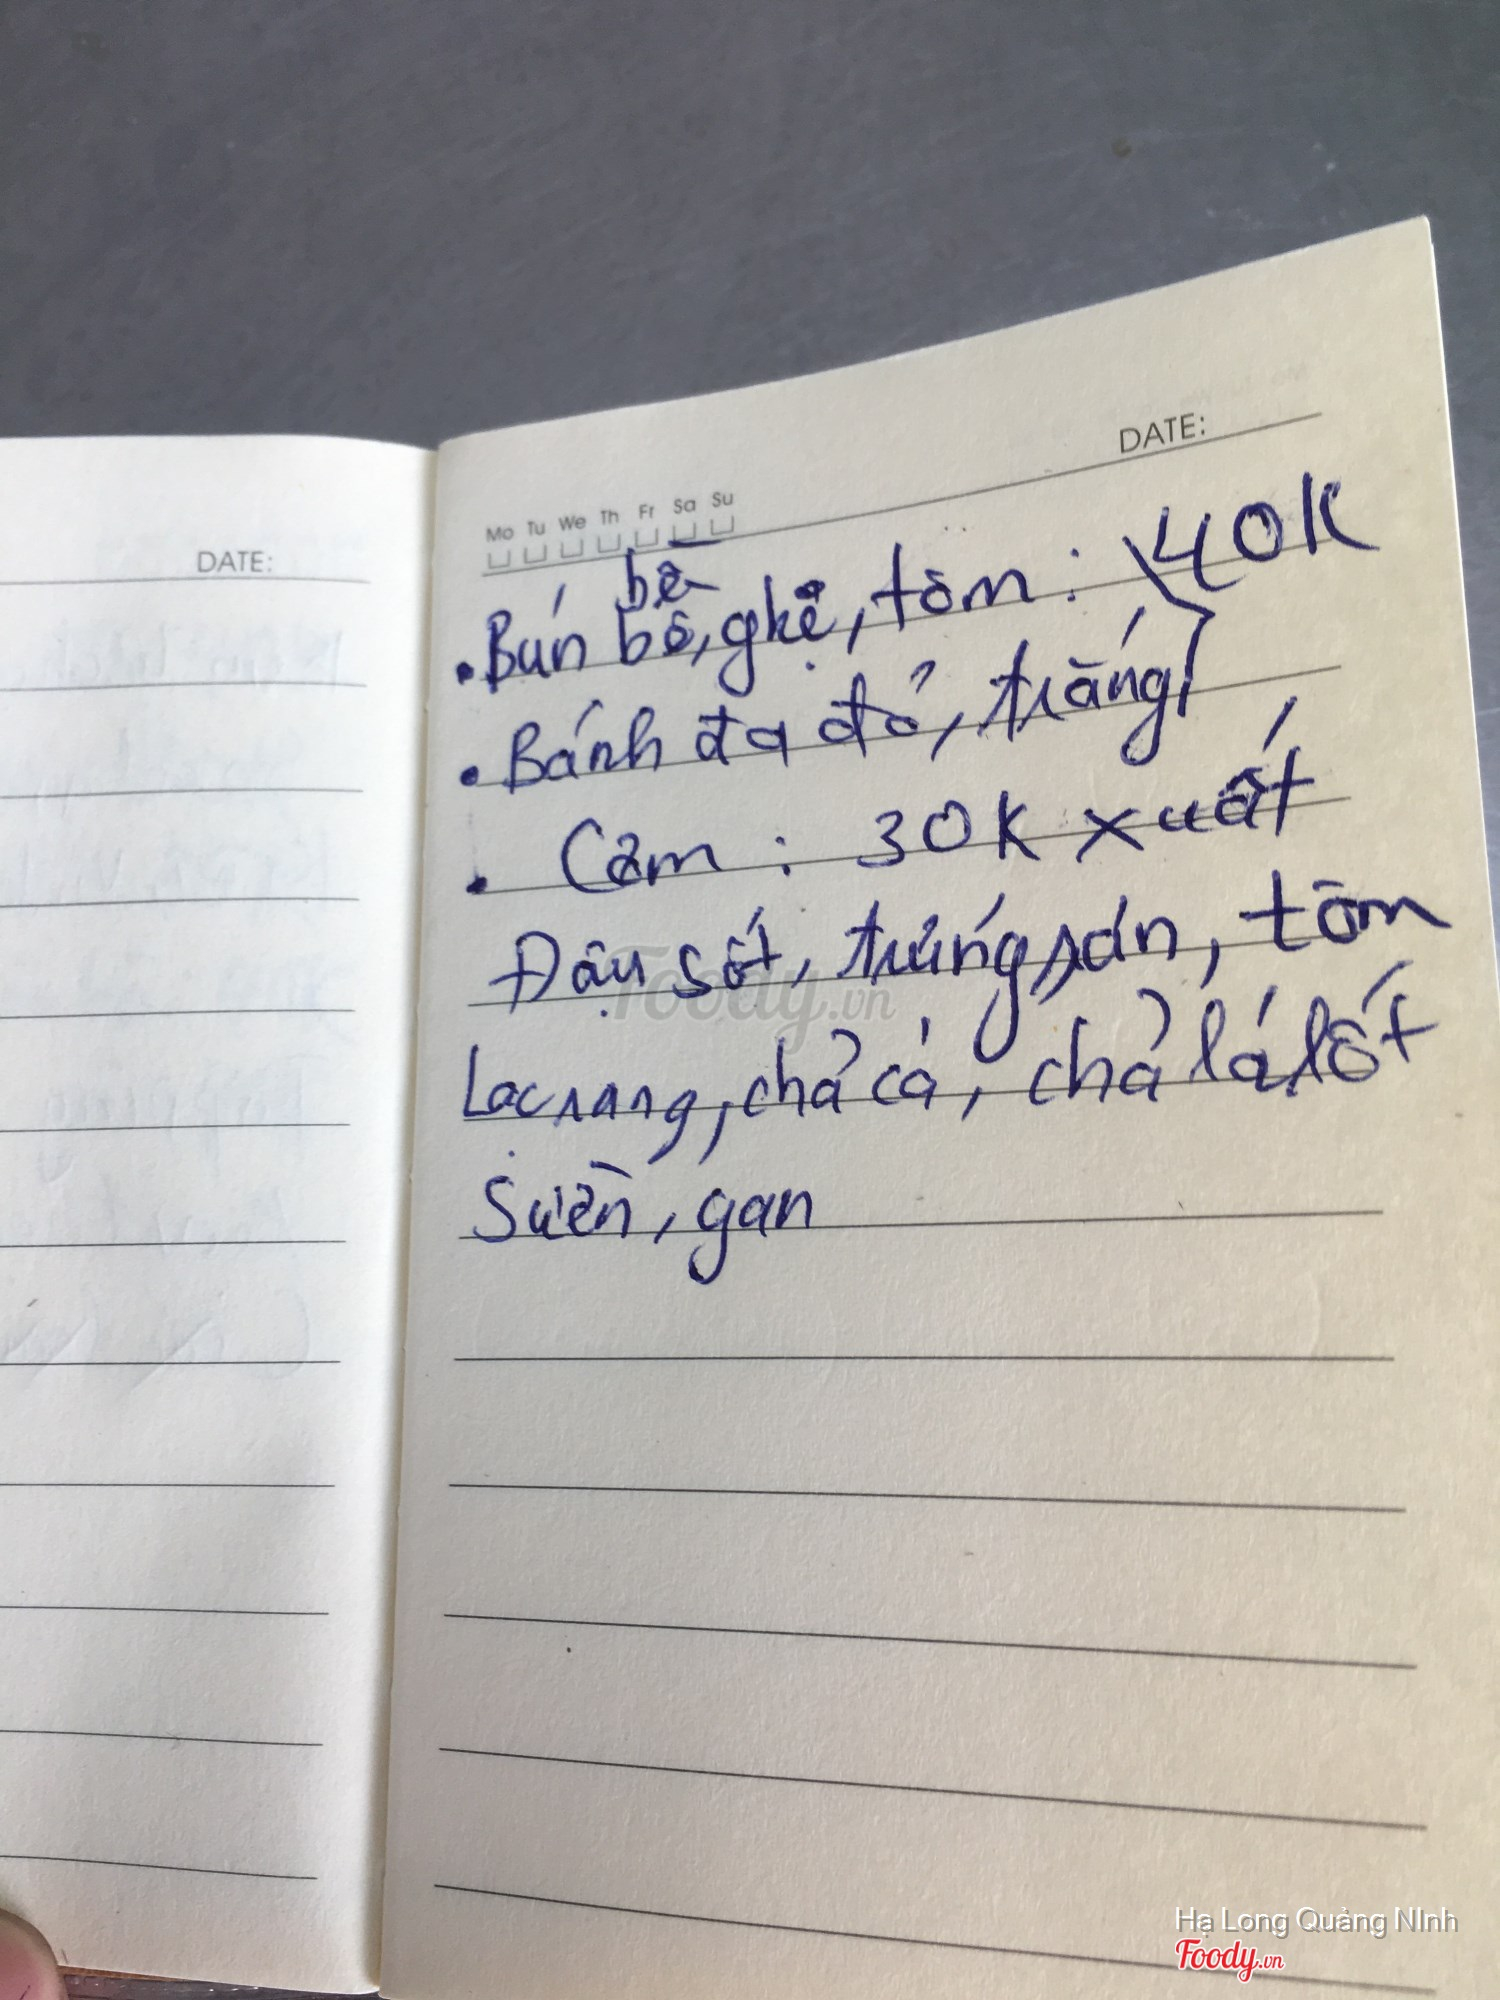 DATE:
DATE:
Mo Tu We Th Fr Sa Su
bề
• Bún bề, ghẹ, tôm : 40K
• Bánh đa đỏ, trắng
• Cơm : 30K xuất
Đậu sốt, trứng rán, tôm
Lạc rang, chả cá, chả lá lốt
Sườn, gan
Foody.vn
Hạ Long Quảng NInh
Foody.vn